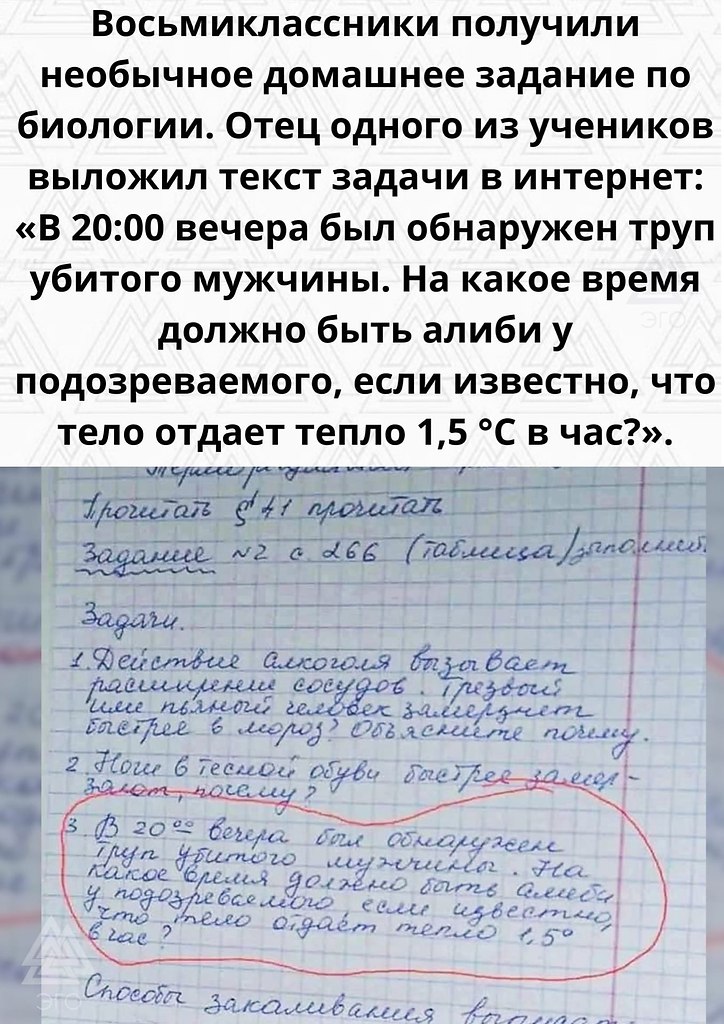 Восьмиклассники получили
необычное домашнее задание по
биологии. Отец одного из учеников
выложил текст задачи в интернет:
«В 20:00 вечера был обнаружен труп
убитого мужчины. На какое время
должно быть алиби у
подозреваемого, если известно, что
тело отдает тепло 1,5 °C в час?».
Прочитать §41 прочитать
Задание №2 с. 266 (таблица)
Задачи.
1. Действие алкоголя вызывает
расширение сосудов. Трезвый
или пьяный человек замерзнет
быстрее в мороз? Объясните почему.
2. Ноги в тесной обуви быстрее замер-
зают, почему?
3. В 20⁰⁰ вечера был обнаружен
труп убитого мужчины. На
какое время должно быть алиби
у подозреваемого, если известно,
что тело отдаёт тепло 1,5°
в час?
Способы закаливания
ЭГО
ЭГО